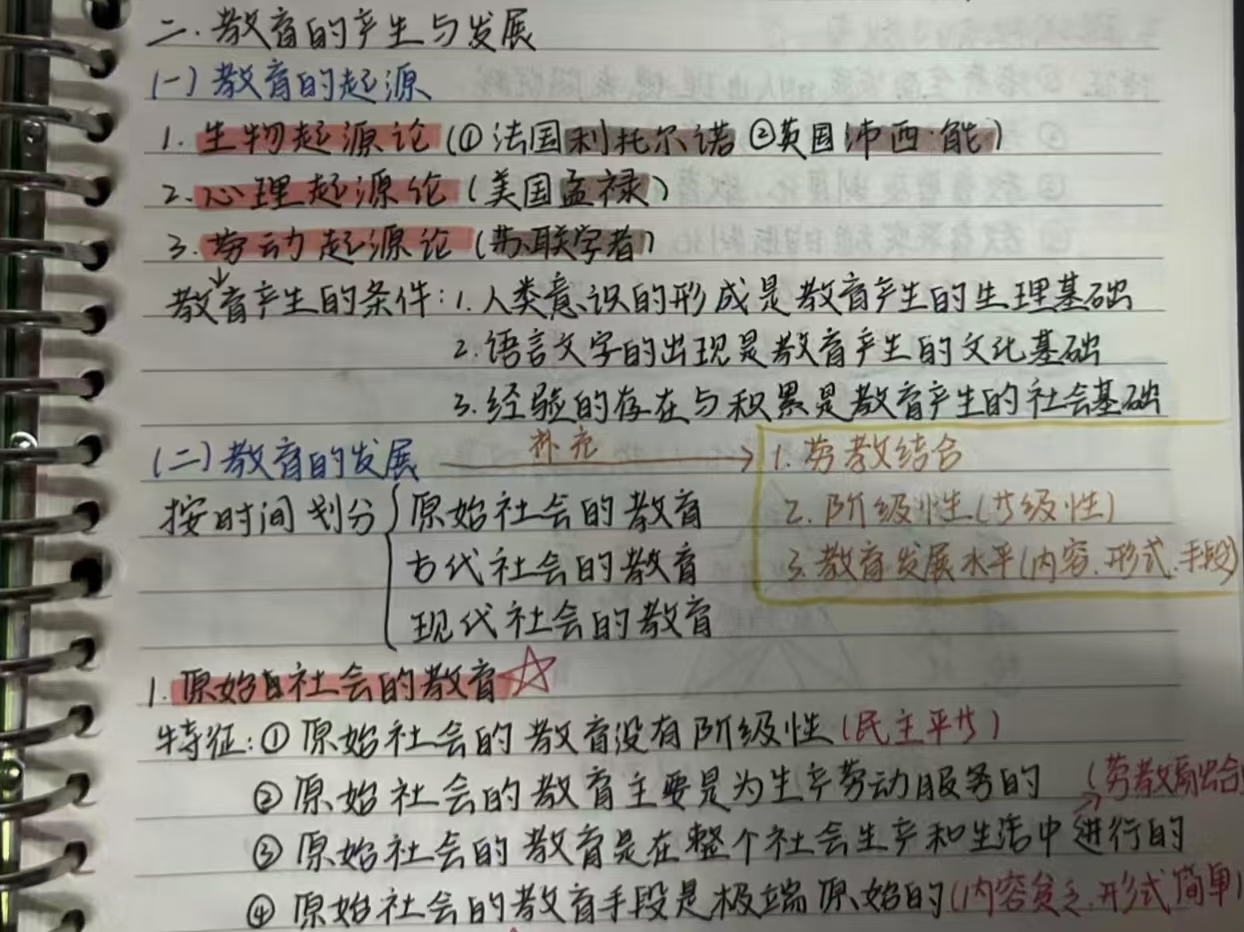 二.教育的产生与发展
(一)教育的起源
1.生物起源论(①法国利托尔诺 ②英国沛西·能)
2.心理起源论(美国孟禄)
3.劳动起源论(苏联学者)
教育产生的条件:1.人类意识的形成是教育产生的生理基础
2.语言文字的出现是教育产生的文化基础
3.经验的存在与积累是教育产生的社会基础
(二)教育的发展 补充 → 1.劳教结合
按时间划分{原始社会的教育 2.阶级性(等级性)
古代社会的教育 3.教育发展水平(内容.形式.手段)
现代社会的教育
1.原始社会的教育☆
特征:①原始社会的教育没有阶级性(民主平等)
②原始社会的教育主要是为生产劳动服务的 (劳教
③原始社会的教育是在整个社会生产和生活中进行的
④原始社会的教育手段是极端原始的(内容贫乏.形式简单)